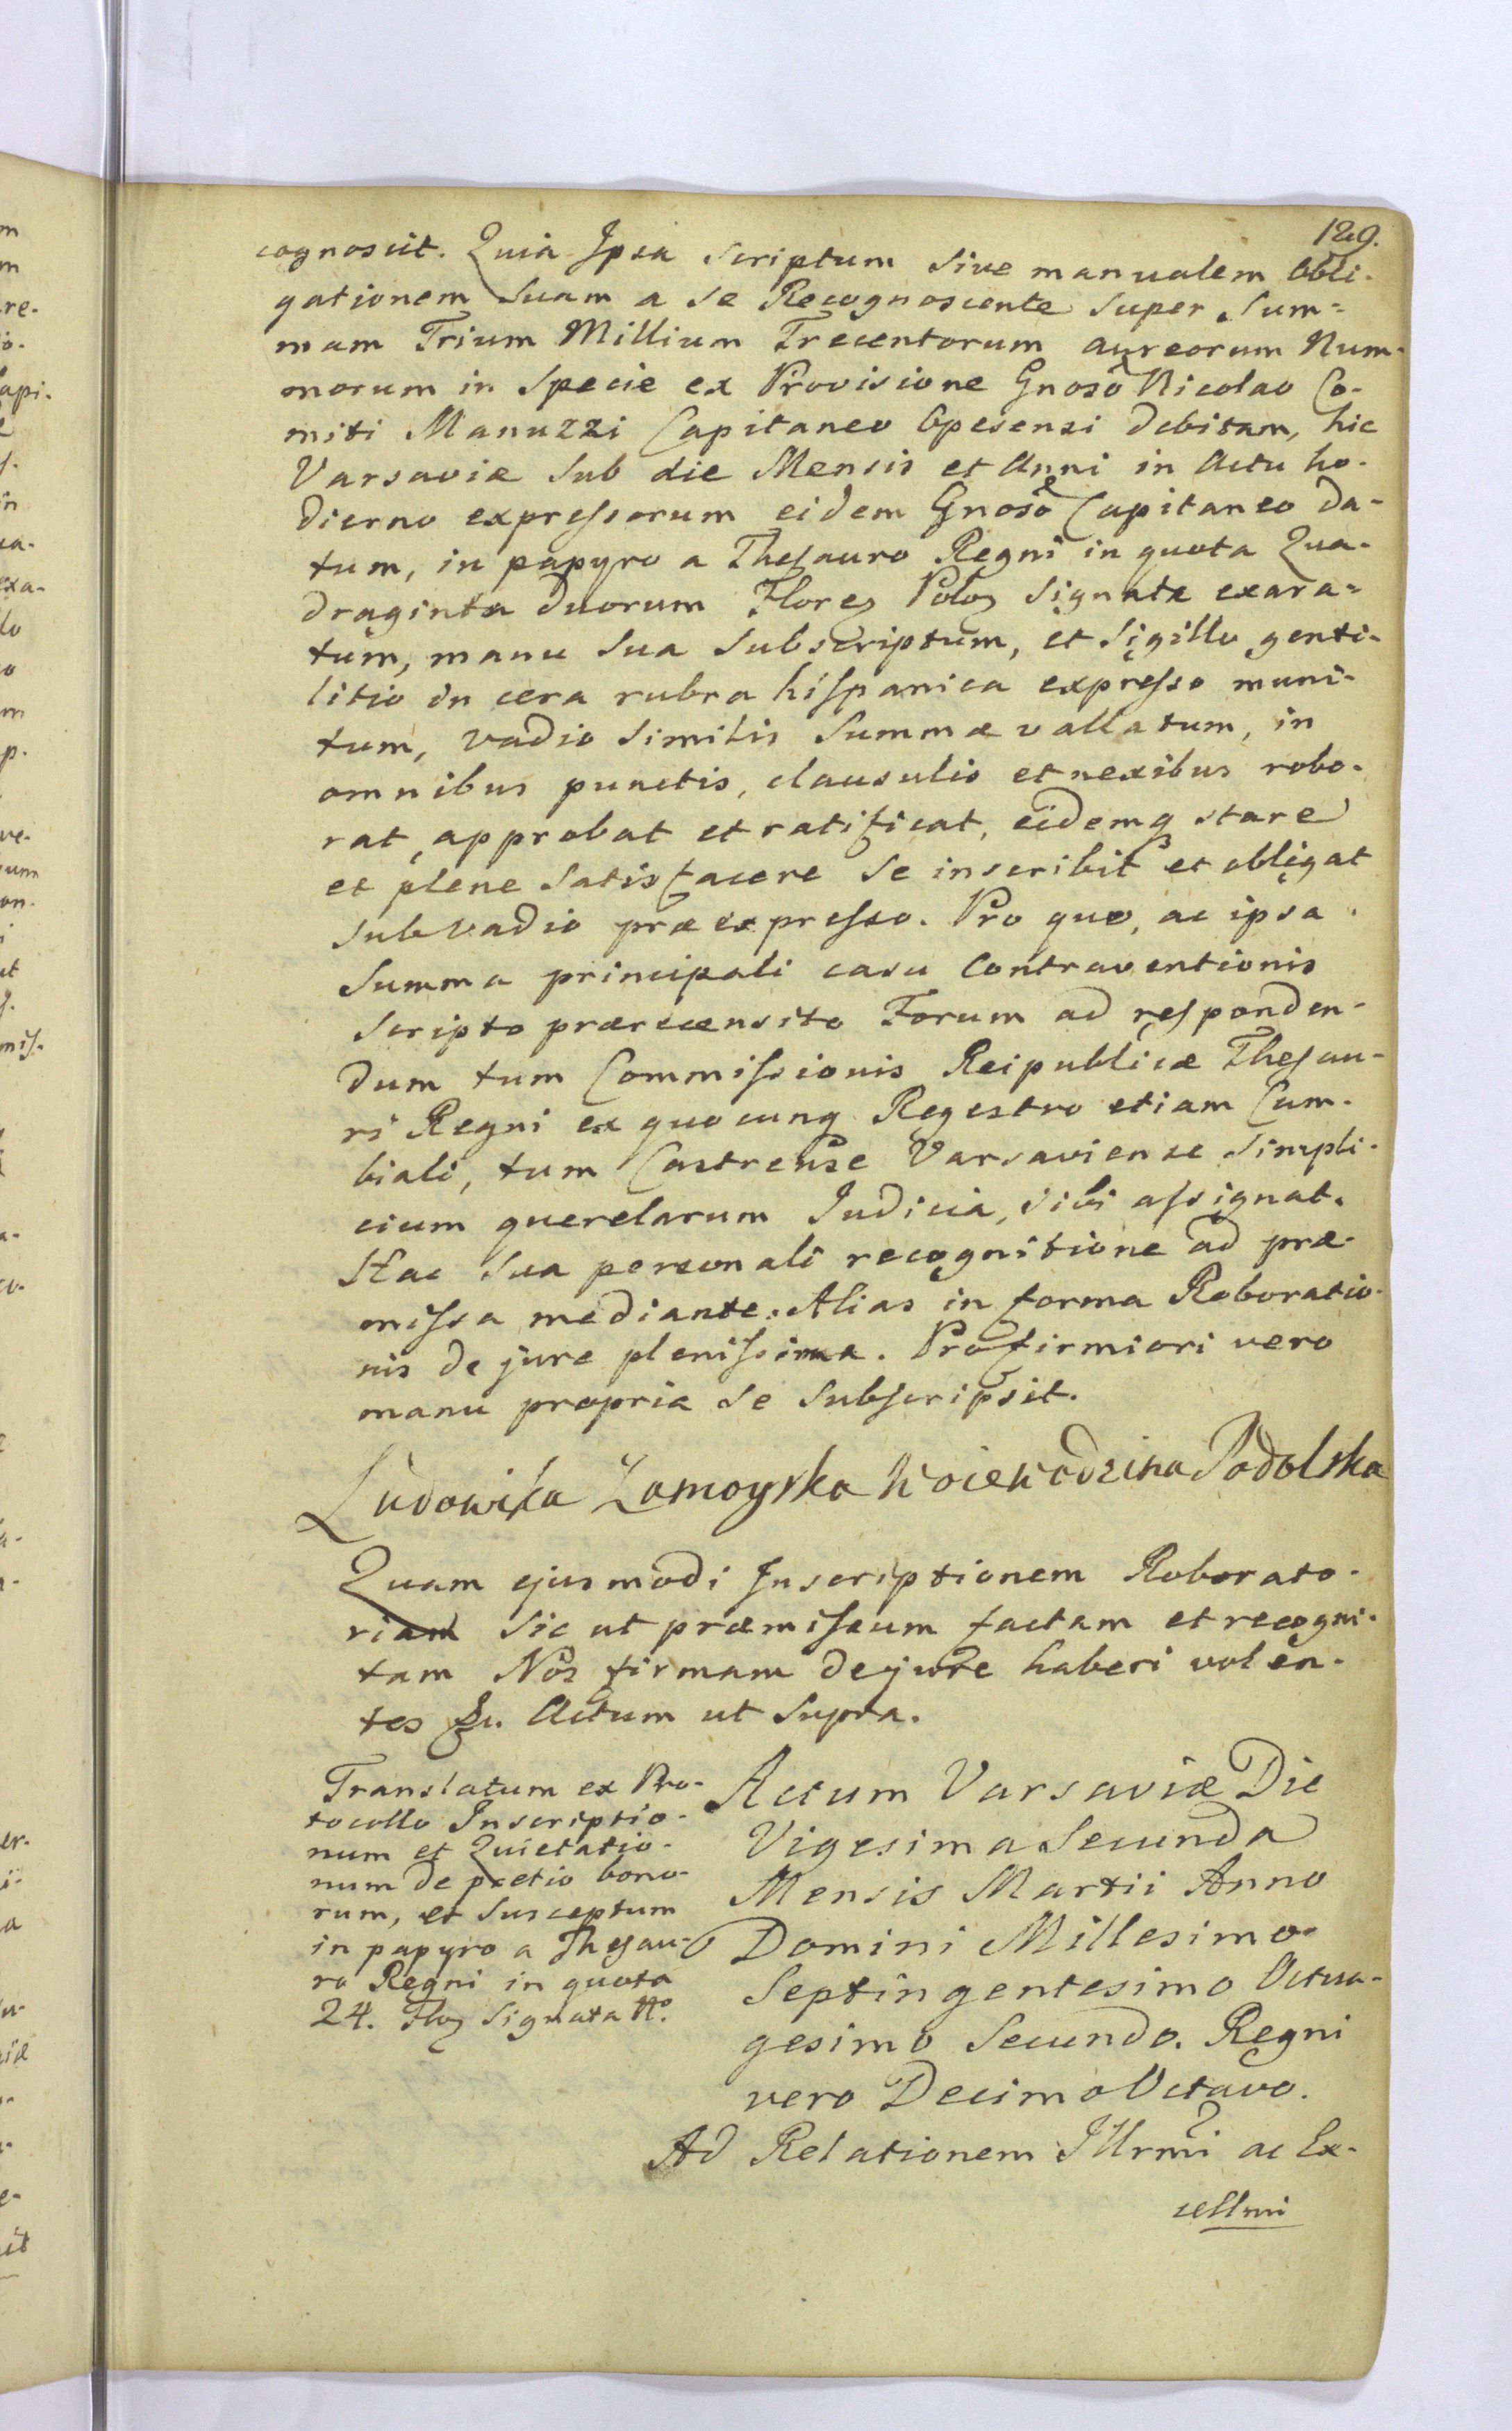 129.
cognoscit. Quia Ipsa scriptum sive manualem obli-
gationem suam a se Recognoscente super sum=
mam Trium Millium Trecentorum aureorum Num-
morum in specie ex Provisione Gnoso Nicolao Co-
miti Manuzzi Capitaneo Opesensi debitam, hic
Varsaviæ sub die Mensis et Anni in Actu ho-
dierno expressorum eidem Gnoso Capitaneo da-
tum, in papyro a Thesauro Regni in quota Qua-
draginta duorum Florez Poloz signata exara=
tum, manu sua subscriptum, et sigillo genti-
litio in cera rubra hispanica expresso muni-
tum, vadio similis summæ vallatum, in
omnibus punctis, clausulis et nexibus robo-
rat, approbat et ratificat, eidemq stare
et plene satisfacere se inscribit et obligat
sub vadio præexpresso. Pro quo, ac ipsa
summa principali casu Contraventionis
scripto præscensito Forum ad responden-
dum tum Commissionis Reipublicæ Thesau-
ri Regni ex quocunq Regestro etiam Cum-
biali, tum Castrense Varsaviense simpli-
cium querelarum Judicia, sibi assignat.
Hac sua personali recognitione ad præ-
missa mediante. Alias in forma Roboratio-
nis de jure plenissima. Pro firmiori vero
manu propria se subscripsit.
Ludowika Zamoyska Woiewodzina Podolska
Quam ejusmodi Inscriptionem Roborato-
riam sic ut præmissum factam et recogni-
tam Nos firmam de jure haberi volen-
tes &c. Actum ut supra.
Translatum ex Pro-
tocollo Inscriptio-
num et Quietatio-
num de pretio bono-
rum, et susceptum
in papyro a Thesau-
ro Regni in quota
24. Floz signata
Actum Varsaviæ Die
Vigesima Secunda
Mensis Martii Anno
Domini Millesimo
Septingentesimo Octua-
gesimo Secundo. Regni
vero Decimo Octavo.
Ad Relationem Illrmi ac Ex-
cellmi